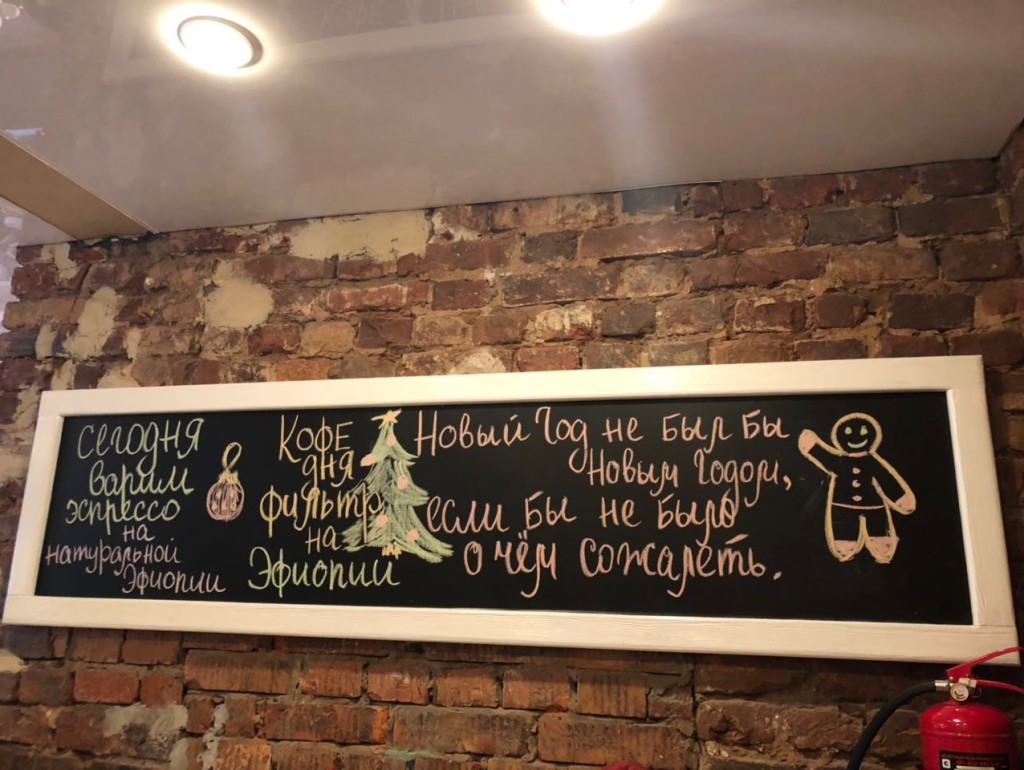 Сегодня
варим
эспрессо
на
натуральной
Эфиопии
Кофе
дня
фильтр
на
Эфиопии
Новый Год не был бы
Новым Годом,
если бы не было
о чём сожалеть.